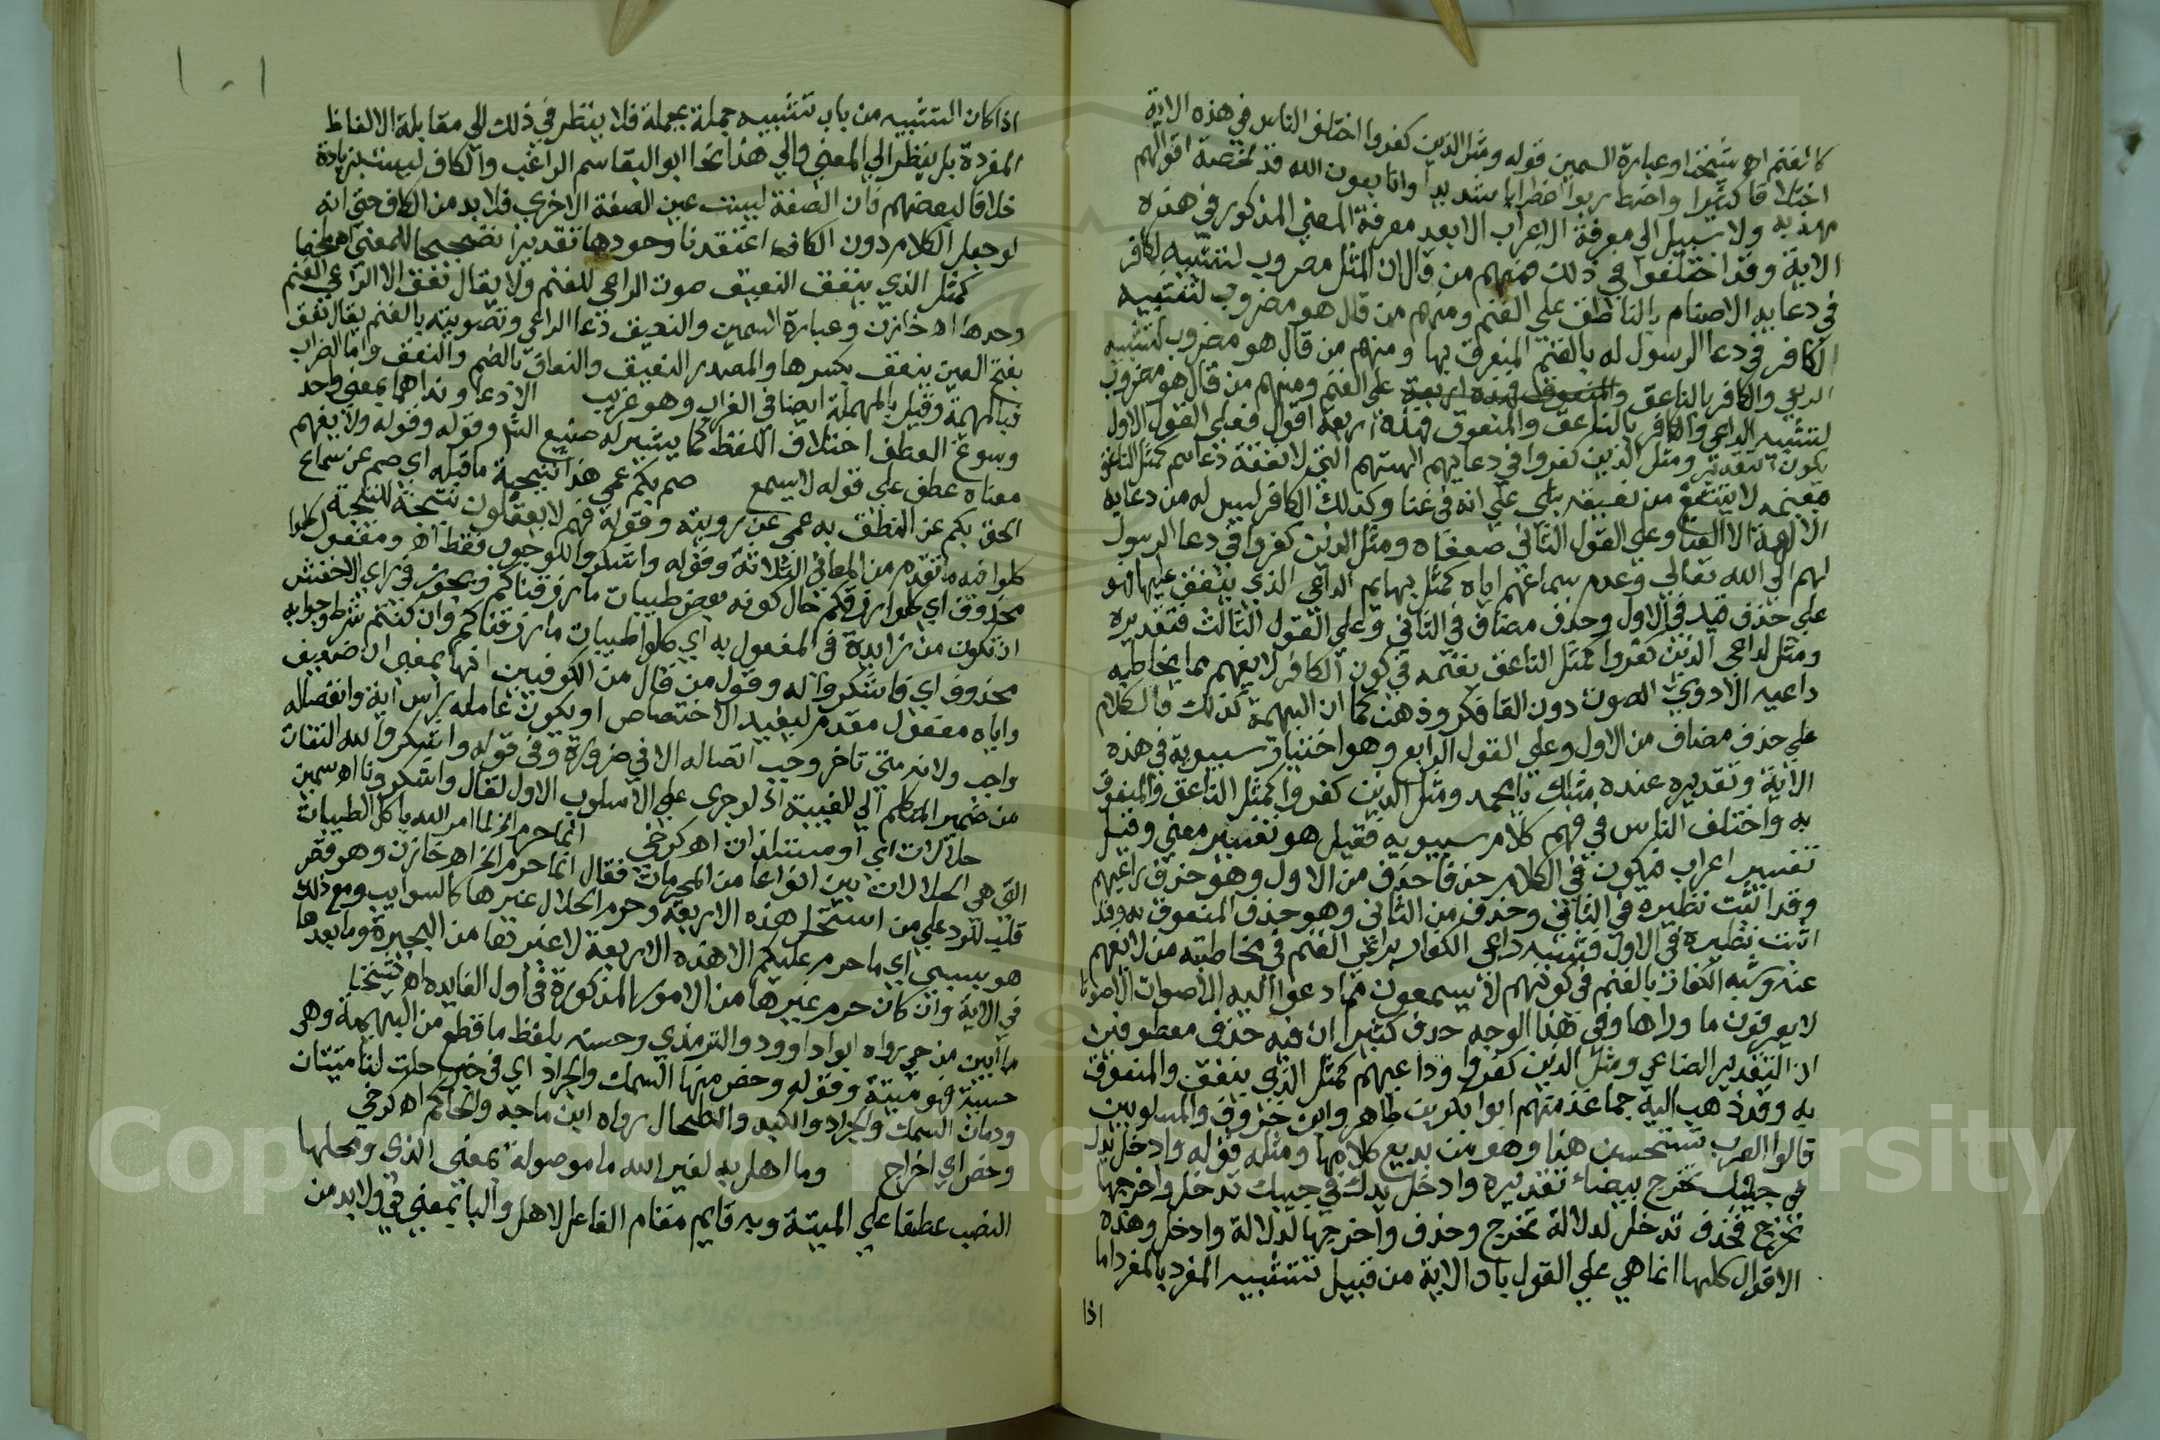 كالغنم اه شيخنا وعبارة السمين قوله ومثل الذين كفروا اختلف الناس في هذه الاية
اختلافا كثيرا واضطربوا اضطرابا شديدا وانا بعون الله قد لخصت اقوالهم
مهذبه ولا سبيل الى معرفة الاعراب الا بعد معرفة المعني المذكور في هذه
الاية وقد اختلفوا في ذلك فمنهم من قال ان المثل مضروب لتشبيه الكافر
في دعايه الاصنام بالناعق علي الغنم ومنهم من قال هو مضروب لتشبيه
الكافر في دعا الرسول له بالغنم المنعوق بها ومنهم من قال هو مضروب لتشبيه
الداعي والكافر بالناعق والمنعوق فهذه اربعة علي الغنم ومنهم من قال هو مضروب
لتشبيه الداعي والكافر بالناعق والمنعوق فهذه اربعة اقوال فعلي القول الاول
يكون التقدير ومثل الذين كفروا في دعايهم الهتهم التي لا تفقه دعاهم كمثل الناعق
بغنمه لا ينتفع من نعيقه بشي علي انه في عنا وكذلك الكافر ليس له من دعايه
الالهة الا العنا وعلي القول الثاني معناه ومثل الذين كفروا في دعا الرسول
لهم الي الله تعالي وعدم سماعهم اياه كمثل بهايم الداعي الذي ينعق عليها فهو
علي حذف قيد في الاول وحذف مضاف في الثاني وعلي القول الثالث فتقديره
ومثل داعي الذين كفروا كمثل الناعق بغنمه في كون الكافر لا يفهم مما يخاطبه
داعيه الا دوي الصوت دون القا فكر وذهن كما ان البهيمة كذلك فالكلام
علي حذف مضاف من الاول وعلي القول الرابع وهو اختيار سيبويه في هذه
الاية وتقديره عنده مثلك يا محمد ومثل الذين كفروا كمثل الناعق والمنعوق
به واختلف الناس في فهم كلام سيبويه فقيل هو تفسير معني وقيل
تفسير اعراب فيكون في الكلام حذفا حذف من الاول وهو حذف داعيهم
وقد اثبت نظيره في الثاني وحذف من الثاني وهو حذف المنعوق به وقد
اثبت نظيره في الاول فشبه داعي الكفار براعي الغنم في مخاطبته من لا يفهم
عنه وشبه الكفار بالغنم في كونهم لا يسمعون مما دعوا اليه الا اصوات لا
لا يعرفون ما وراها وفي هذا الوجه حذف كثير اذ فيه حذف معطوفين
اذ التقدير الصناعي ومثل الذين كفروا وداعيهم كمثل الذي ينعق والمنعوق
به وقد ذهب اليه جماعة منهم ابو بكر بن طاهر وابن خروف والشلوبين
قالوا العرب تستحسن هذا وهو من بديع كلامها ومثله قوله وادخل يدك
في جيبك تخرج بيضاء تقديره وادخل يدك في جيبك تدخل واخرجها
تخرج فحذف تدخل لدلالة تخرج وحذف واخرجها لدلالة وادخل وهذه
الاقوال كلها انما هي علي القول بان الاية من قبيل تشبيه المفرد بالمفرد اما
اذا
١٠١
اذا كان التشبيه من باب تشبيه جملة بجملة فلا ينظر في ذلك الي مقابلة الالفاظ
المفردة بل ينظر الي المعني والي هذا نحا ابو القاسم الراغب والكاف ليست بزيادة
خلافا لبعضهم فان الصفة ليست عين الصفة الاخري فلا بد من الكاف حتي انه
لو جعل الكلام دون الكاف اعتقدنا وجودها تقديرا تصحيحا للمعني اه ملخصا
كمثل الذي ينعق النعيق صوت الراعي للغنم ولا يقال نعق الا الراعي الغنم
وحدها اه خازن وعبارة السمين والنعيق دعا الراعي وتصويته بالغنم يقال نعق
بفتح العين ينعق بكسرها والمصدر النعيق والنعاق بالضم والنعق واما الغراب
فبالمهمة وقيل بالمهملة ايضا في الغراب وهو غريب الا دعا وندا هما بمعني واحد
وسوغ العطف اختلاف اللفظ كما يشير له صنيع الش وقوله وقوله ولا يفهم
معناه عطف علي قوله لا يسمع صم بكم عمي هذا نتيجة ما قبله اي صم عن سماع
الحق بكم عن النطق به عمي عن رويته وقوله فهم لا يعقلون نتيجة للنتيجة كلوا
كلوا فيه ما تقدم من المعاني الثلاثة وقوله واشكروا للوجوب فقط اه ومفعول
محذوف اي كلوا رزقكم حال كونه بعض طيبات ما رزقناكم ويجوز في راي الاخفش
ان تكون من زايدة في المفعول به اي كلوا طيبات ما رزقناكم وان كنتم شرط وجوابه
محذوف اي فاشكروا له وقول من قال من الكوفيين انها بمعني اذ ضعيف
واياه مفعول مقدم ليفيد الاختصاص او يكون عامله راس اية وانفصاله
واجب ولانه متي تاخر وجب اتصاله الا في ضرورة وفي قوله واشكروا لله التفات
من ضمير المتكلم الي الغيبة اذ لو جري علي الاسلوب الاول لقال واشكرونا اه سمين
حلالات اي او مستلذات اه كرخي انما حرم الخ لما امر الله باكل الطيبات
التي هي الحلالات بين انواعا من المحرمات فقال انما حرم الخ اه خازن وهو قصر
قلب للرد علي من استحل هذه الاربعة وحرم الحلال غيرها كالسوايب ومع ذلك
هو نسبي اي ما حرم عليكم الا هذه الاربعة لا غيرها من البحيرة وما بعدها
في الاية وان كان حرم غيرها من الامور المذكورة في اول المايده اه شيخنا
ما ابين من حي رواه ابو داوود والترمذي وحسنه بلفظ ما قطع من البهيمة وهي
حية فهو ميتة وقوله وخص منها السمك والجراد اي في خبر احلت لنا ميتتان
ودمان السمك والجراد والكبد والطحال رواه ابن ماجه والحاكم اه كرخي
وخص اي اخراج وما اهل به لغير الله ما موصولة بمعني الذي ومحلها
النصب عطفا علي الميتة وبه قايم مقام الفاعل لاهل والبا بمعني في ولا بد من
Copyright © King University